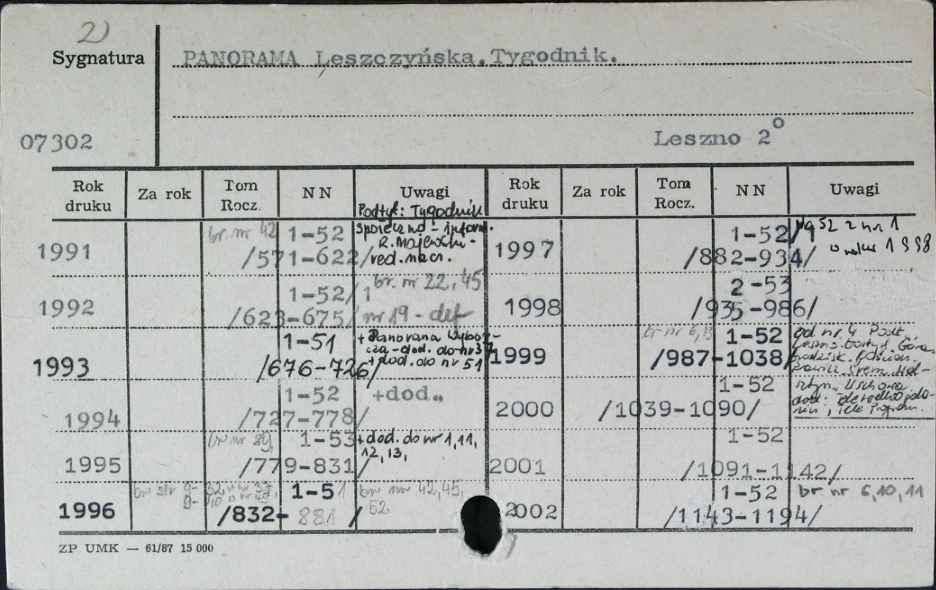 2)
Sygnatura PANORAMA Leszczyńska. Tygodnik.
07302 Leszno 2º
Rok druku Za rok Tom Rocz. NN Uwagi Rok druku Za rok Tom Rocz. NN Uwagi
Podtyt: Tygodnik
społeczno-inform.
R. Majewski-
red. nacz.
1991 br. nr 42 1-52
/571-622/
1992 1-52/1 br. nr 22, 45
/623-675/ nr 19 - def
1993 1-51 + Panorama Wybor
cza - dod. do nr 37
/676-726/ + dod. do nr 51
1994 1-52 +dod.
/727-778/
1995 br nr 29, 1-53 +dod. do nr 1,11,
/779-831/ 12,13,
1996 br str 9- 1-51 br nr 42,45,
/832-881/ 52
1997 1-52/ nr 1
/882-934/ 1998
1998 2-53
/935-986/
1999 br nr 6,8 1-52 od nr 4 Podt
/987-1038/ Góra
2000 1-52
/1039-1090/ Wschowa
dod:
2001 1-52
/1091-1142/
2002 1-52 br nr 6,10,11
/1143-1194/
ZP UMK — 61/87 15 000